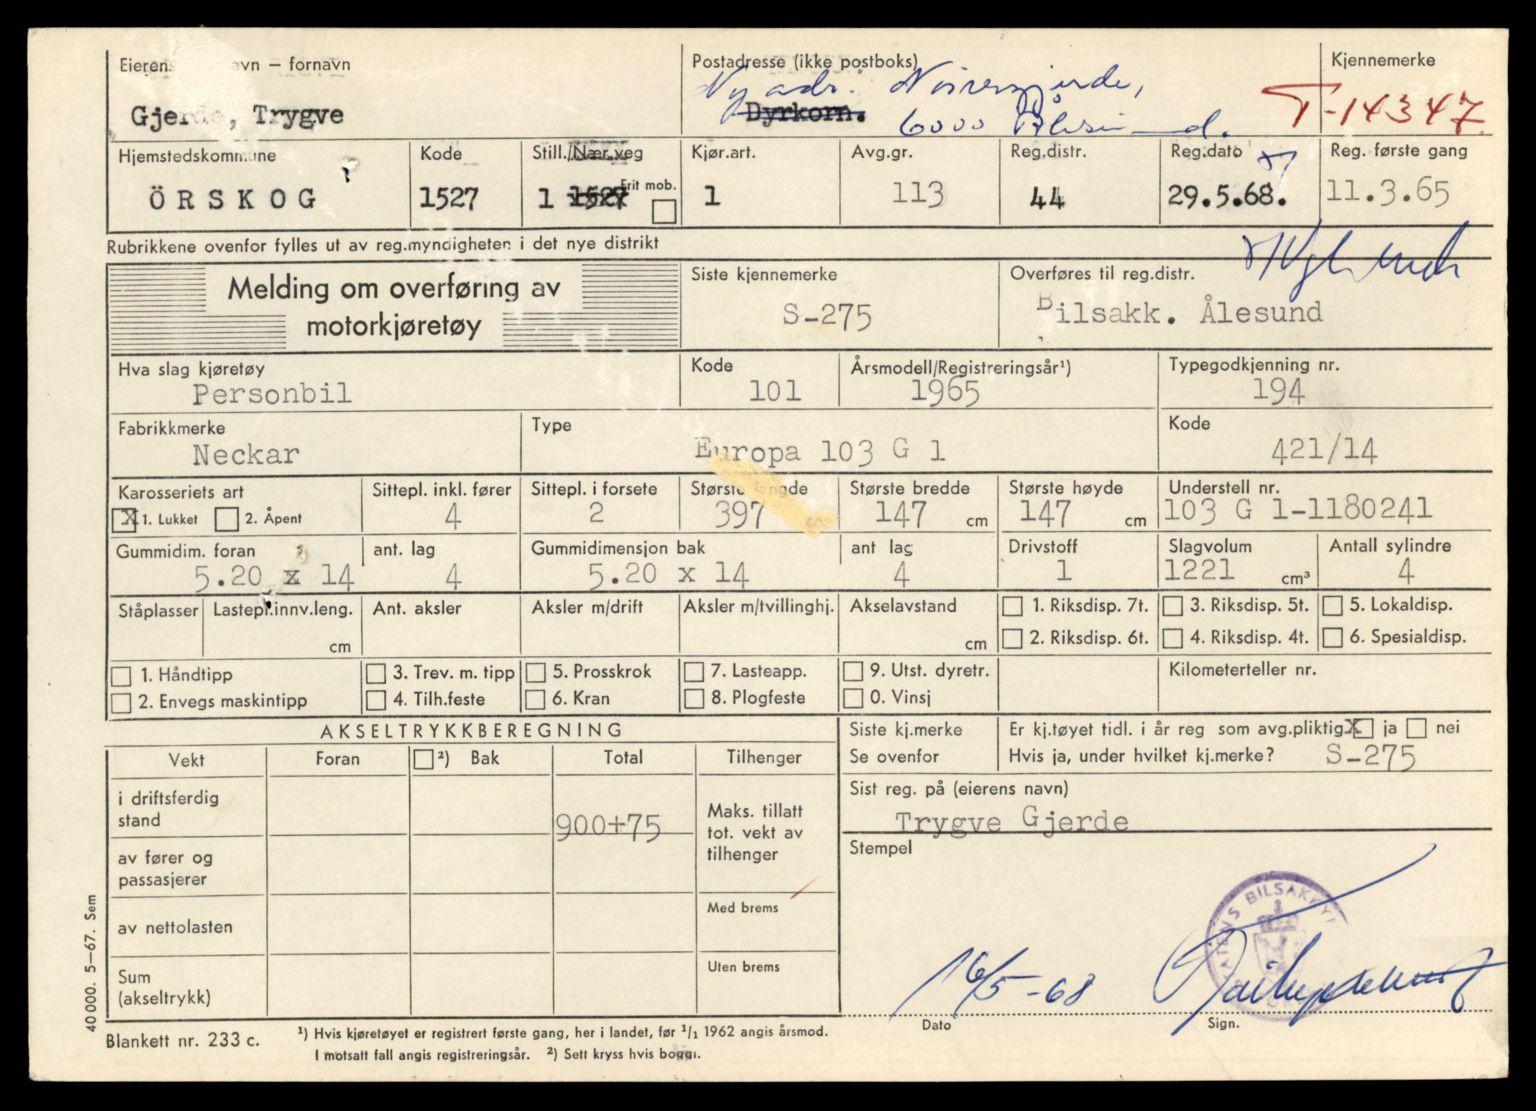 Eierens      navn – fornavn
Gjerde, Trygve
Postadresse (ikke postboks)
Ny adr. Nørvegjerde,
Dyrkorn.
6000 Ålesund.
Kjennemerke
T-14347.
Hjemstedskommune
ÖRSKOG
Kode
1527
Still./Nær.veg
1 1527
Frit mob.
Kjør.art.
1
Avg.gr.
113
Reg.distr.
44
Reg.dato
29.5.68.
Reg. første gang
11.3.65
Rubrikkene ovenfor fylles ut av reg.myndigheten i det nye distrikt
Melding om overføring av
motorkjøretøy
Siste kjennemerke
S-275
Overføres til reg.distr.
Bilsakk. Ålesund
Hva slag kjøretøy
Personbil
Kode
101
Årsmodell/Registreringsår¹)
1965
Typegodkjenning nr.
194
Fabrikkmerke
Neckar
Type
Europa 103 G 1
Kode
421/14
Karosseriets art
X 1. Lukket 2. Åpent
Sittepl. inkl. fører
4
Sittepl. i forsete
2
Største lengde
397
Største bredde
147 cm
Største høyde
147 cm
Understell nr.
103 G 1-1180241
Gummidim. foran
5.20 x 14
ant. lag
4
Gummidimensjon bak
5.20 x 14
ant lag
4
Drivstoff
1
Slagvolum
1221 cm³
Antall sylindre
4
Ståplasser
Lastepl.innv.leng.
cm
Ant. aksler
Aksler m/drift
Aksler m/tvillinghj.
Akselavstand
cm
1. Riksdisp. 7t.
3. Riksdisp. 5t.
5. Lokaldisp.
2. Riksdisp. 6t.
4. Riksdisp. 4t.
6. Spesialdisp.
1. Håndtipp
3. Trev. m. tipp
5. Prosskrok
7. Lasteapp.
9. Utst. dyretr.
Kilometerteller nr.
2. Envegs maskintipp
4. Tilh.feste
6. Kran
8. Plogfeste
0. Vinsj
AKSELTRYKKBEREGNING
Vekt
Foran
²) Bak
Total
Tilhenger
i driftsferdig
stand
900+75
Maks. tillatt
tot. vekt av
tilhenger
av fører og
passasjerer
av nettolasten
Med brems
Sum
(akseltrykk)
Uten brems
Siste kj.merke
Se ovenfor
Er kj.tøyet tidl. i år reg som avg.pliktig X ja nei
Hvis ja, under hvilket kj.merke? S-275
Sist reg. på (eierens navn)
Trygve Gjerde
Stempel
16/5-68
Dato
Sign.
40 000. 5–67. Sem
Blankett nr. 233 c.
¹) Hvis kjøretøyet er registrert første gang, her i landet, før 1/1 1962 angis årsmod.
I motsatt fall angis registreringsår. ²) Sett kryss hvis boggi.